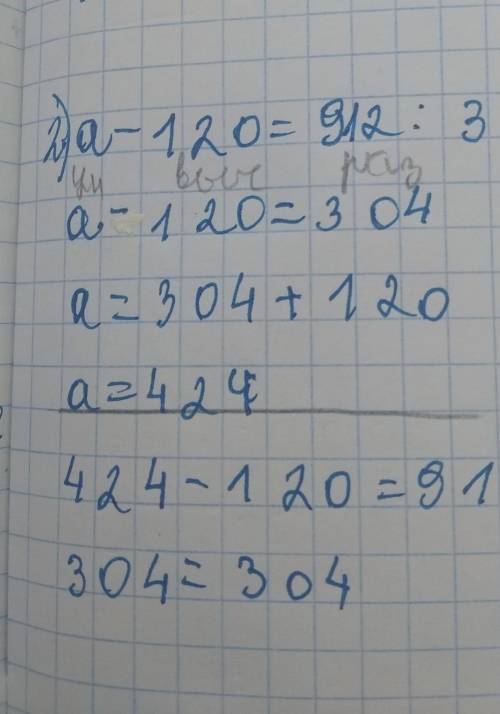 2) a - 120 = 912 : 3
ум выч раз
a - 120 = 304
a = 304 + 120
a = 424
424 - 120 = 91
304 = 304